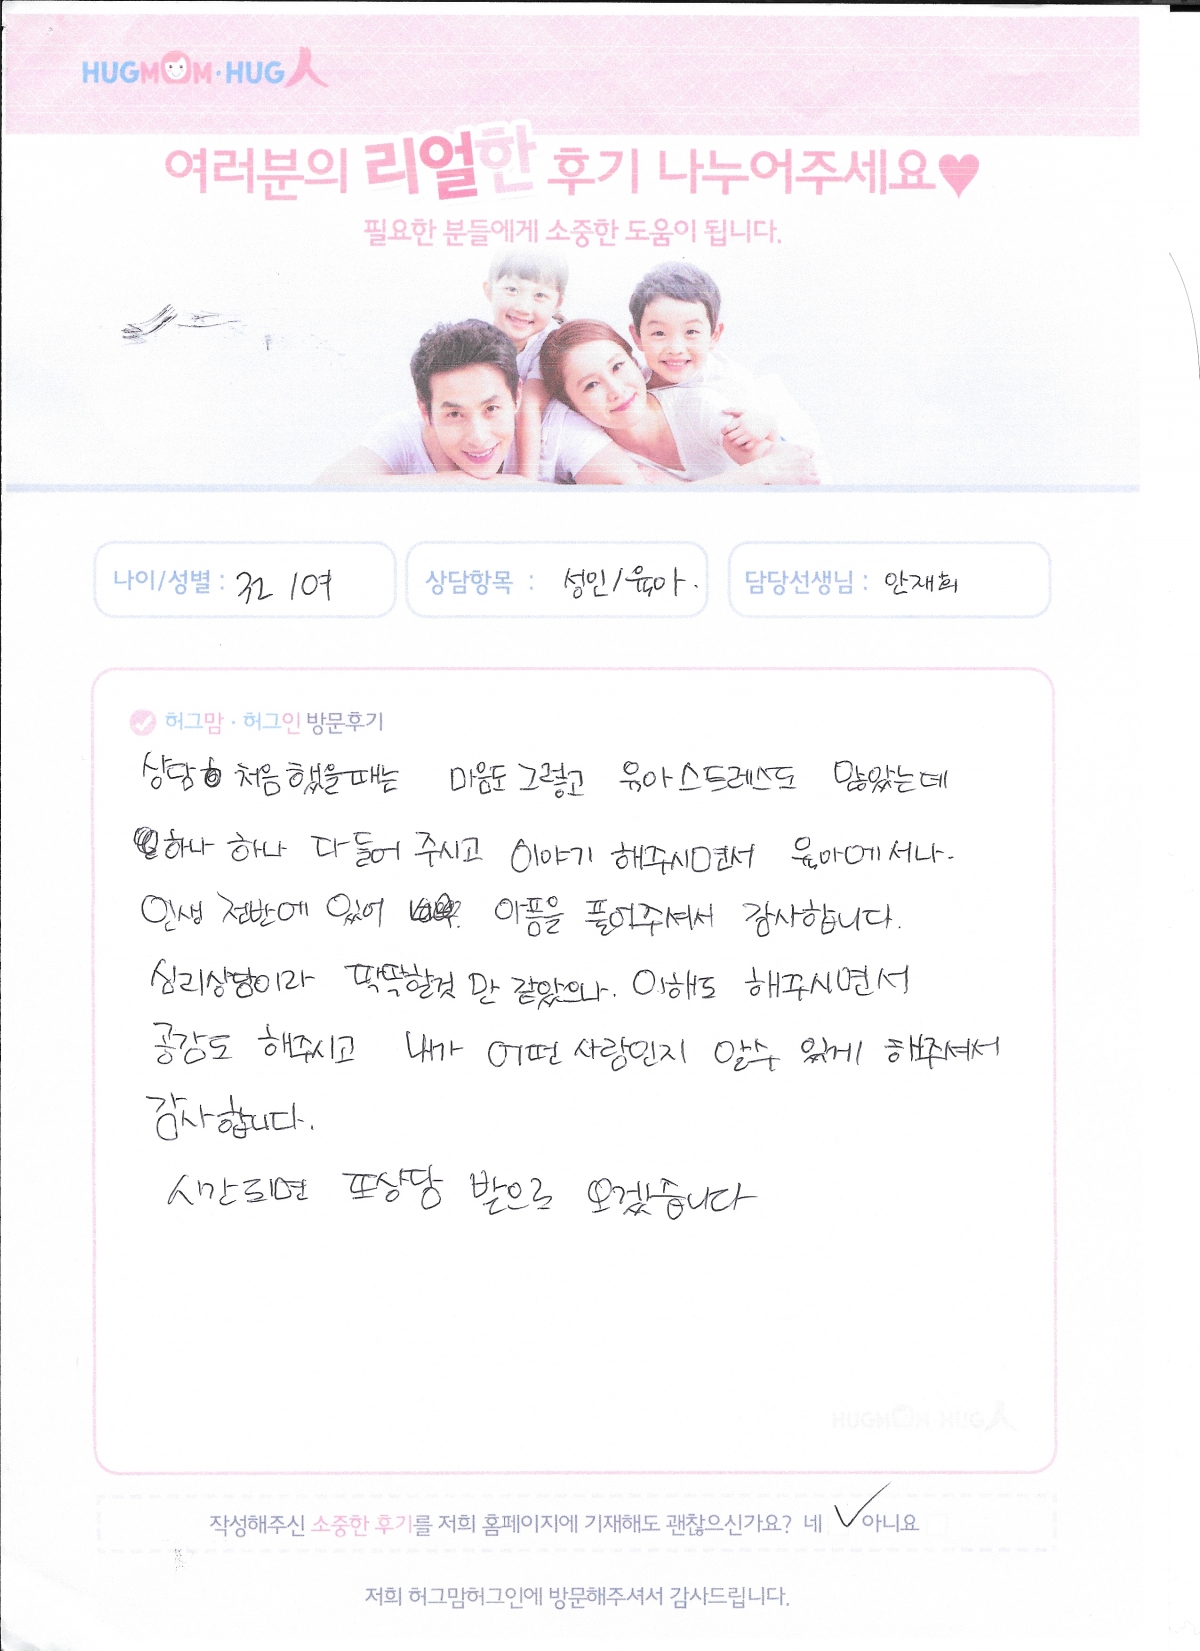 HUGMOM·HUG人
여러분의 리얼한 후기 나누어주세요♥
필요한 분들에게 소중한 도움이 됩니다.
나이/성별 : /여
상담항목 : 성인/육아.
담당선생님 : 안재희
허그맘·허그인 방문후기
상담 처음 했을때는 마음도 그렇고 육아스트레스도 많았는데
하나 하나 다 들어 주시고 이야기 해주시면서 육아에서나.
인생 전반에 있어 아픔을 풀어주셔서 감사합니다.
심리상담이라 딱딱할것 만 같았으나. 이해도 해주시면서
공감도 해주시고 내가 어떤 사람인지 알수 있게 해주셔서
감사합니다.
시간되면 또상담 받으로 오겠습니다
HUGMOM·HUG人
작성해주신 소중한 후기를 저희 홈페이지에 기재해도 괜찮으신가요? 네 ✓ 아니요
저희 허그맘허그인에 방문해주셔서 감사드립니다.